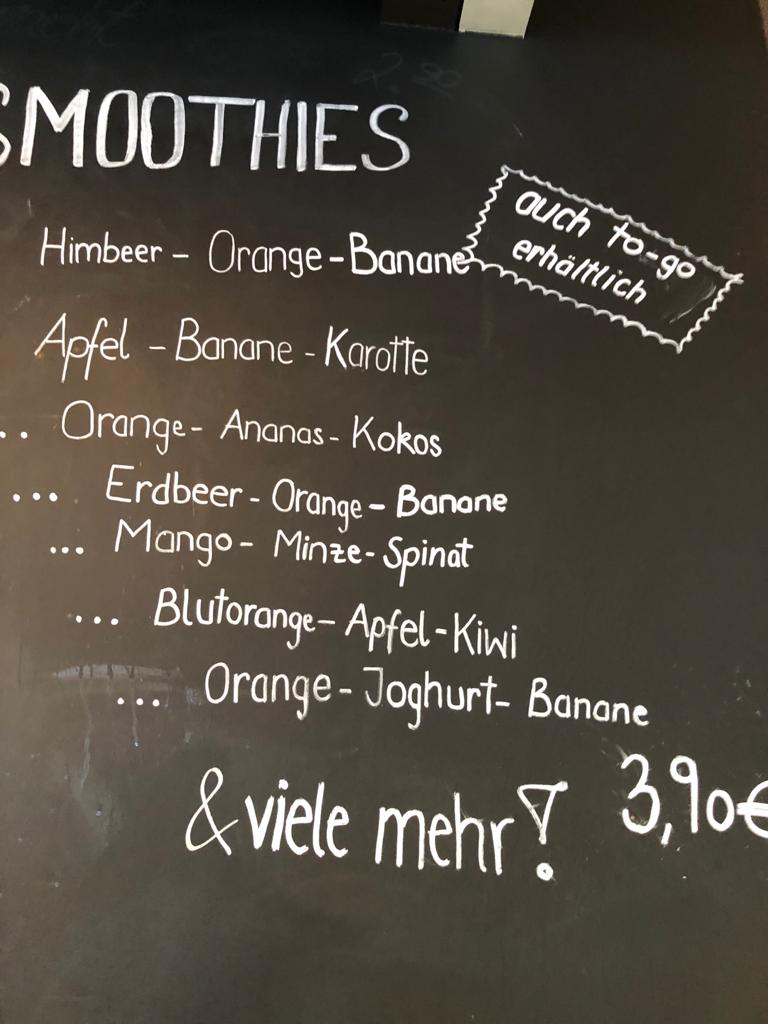 SMOOTHIES
auch to-go
erhältlich
Himbeer - Orange - Banane
Apfel - Banane - Karotte
.. Orange - Ananas - Kokos
... Erdbeer - Orange - Banane
... Mango - Minze - Spinat
... Blutorange - Apfel - Kiwi
... Orange - Joghurt - Banane
& viele mehr! 3,90€